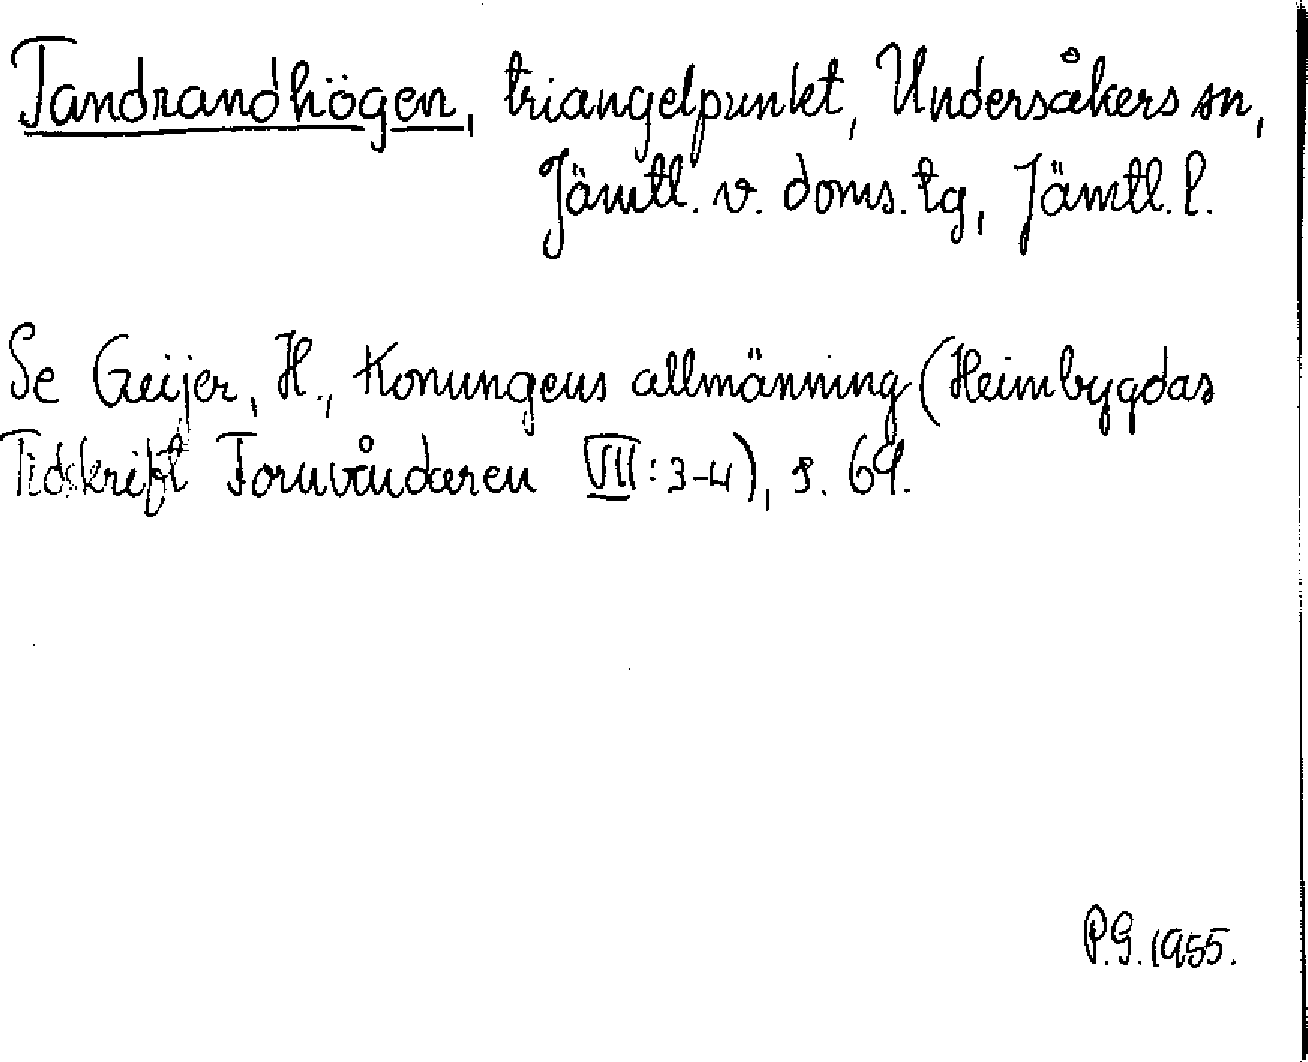 Tandrandhögen, triangelpunkt, Undersåkers sn,
Jämtl. v. doms. tg, Jämtl. l.
Se Geijer, H., Konungens allmänning (Heimbygdas
Tidskrift Fornvårdaren VII: 3-4), s. 69.
P.G. 1955.